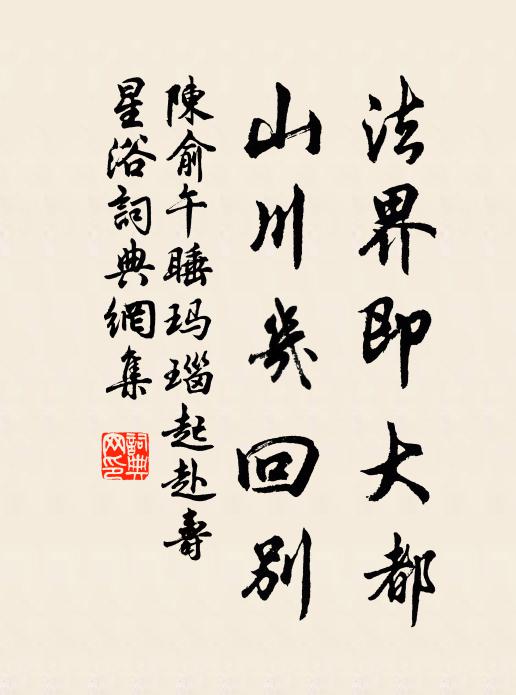 法界即大都
山川幾回別
陳俞午睡玛瑙起赴壽
星浴詞典網集
詞典网印